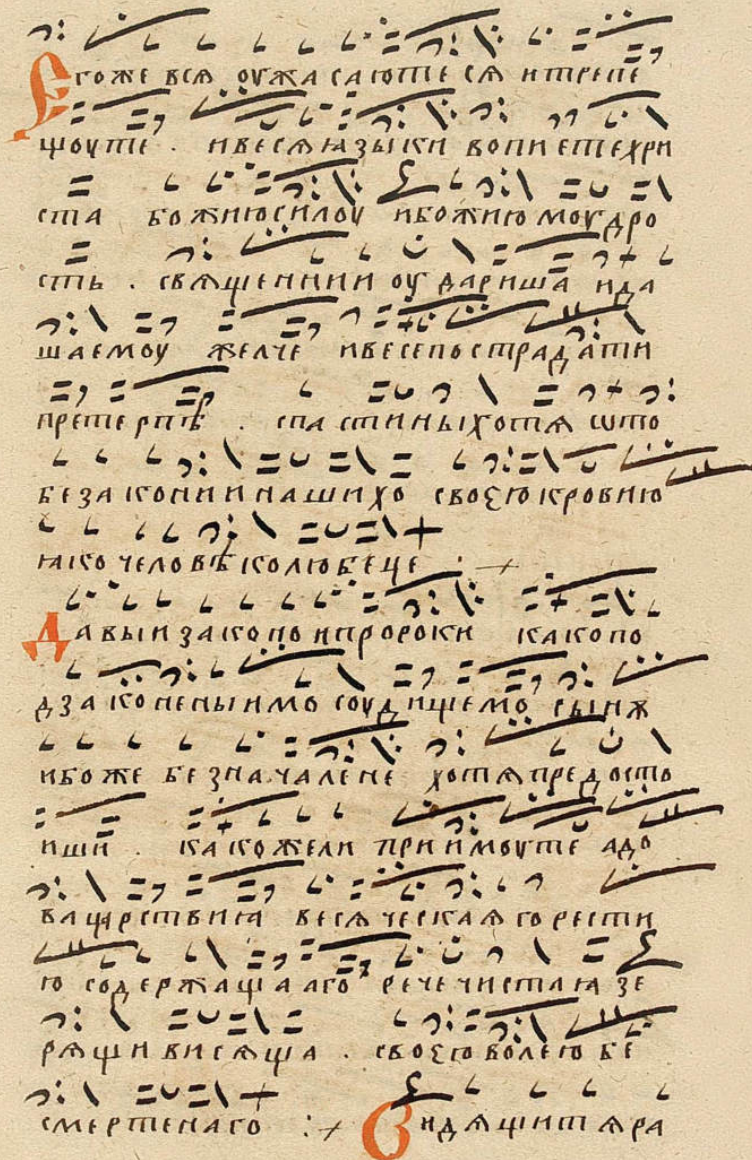 Егоже вся оужасаютеся и трепе
щоуте . и веся ꙗзыки вопиетехри
ста божию силоу и божию моудро
сть . свѧщении оударишѧ и да
шаемоу желче и весепострадати
претерпѣ . спасти ны хотя ѡто
безаконии нашихо своєю кровию
ꙗко человѣколюбеце :+
Давыи законо и пророки како по
дзаконенымо соудищемо сыи ж
и боже безначалене хотѧ предосто
иши . како жели приимоуте адо
ва царствиꙗ веся ческаꙗ горести
ю содержащааго рече чистаꙗ зе
рящи висѧща . своєю волею бе
смертенаго :+ Видящи тѧ ра